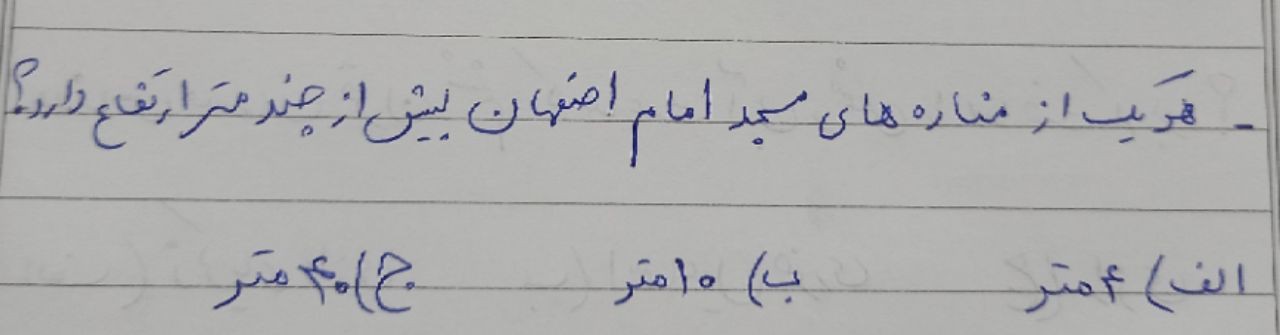 - هریک از مناره های مسجد امام اصفهان بیش از چند متر ارتفاع دارد؟
الف) ۴ متر ب) ۱۰ متر ج) ۴۰ متر